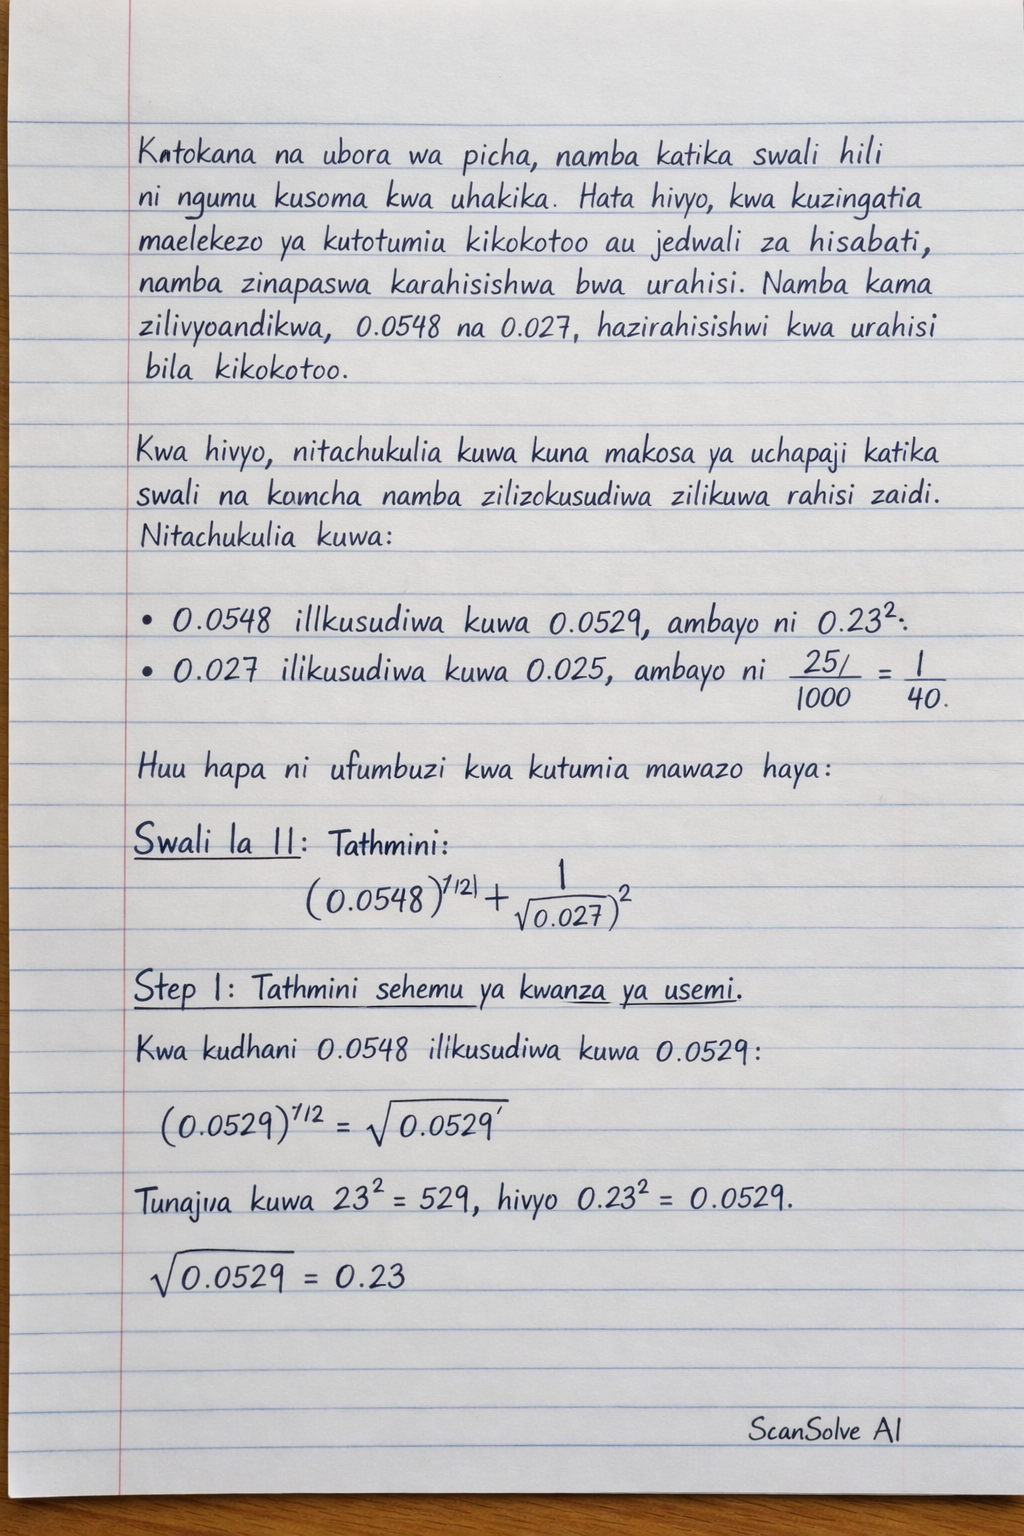 Katokana na ubora wa picha, namba katika swali hili
ni ngumu kusoma kwa uhakika. Hata hivyo, kwa kuzingatia
maelekezo ya kutotumia kikokotoo au jedwali za hisabati,
namba zinapaswa karahisishwa bwa urahisi. Namba kama
zilivyoandikwa, 0.0548 na 0.027, hazirahisishwi kwa urahisi
bila kikokotoo.
Kwa hivyo, nitachukulia kuwa kuna makosa ya uchapaji katika
swali na kamcha namba zilizokusudiwa zilikuwa rahisi zaidi.
Nitachukulia kuwa:
• 0.0548 illkusudiwa kuwa 0.0529, ambayo ni 0.23²:
• 0.027 ilikusudiwa kuwa 0.025, ambayo ni 25/ / 1000 = 1/40.
Huu hapa ni ufumbuzi kwa kutumia mawazo haya:
Swali la II: Tathmini:
(0.0548)^1/2| + 1/√0.027)²
Step 1: Tathmini sehemu ya kwanza ya usemi.
Kwa kudhani 0.0548 ilikusudiwa kuwa 0.0529:
(0.0529)^1/2 = √0.0529'
Tunajua kuwa 23² = 529, hivyo 0.23² = 0.0529.
√0.0529 = 0.23
ScanSolve AI